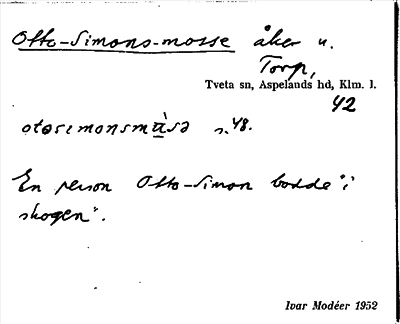 Otto-Simons-mosse åker u.
Torp,
Tveta sn, Aspelands hd, Klm. l.
42
otosimonsmùsə s. 48.
En person Otto-Simon bodde "i
skogen".
Ivar Modéer 1952